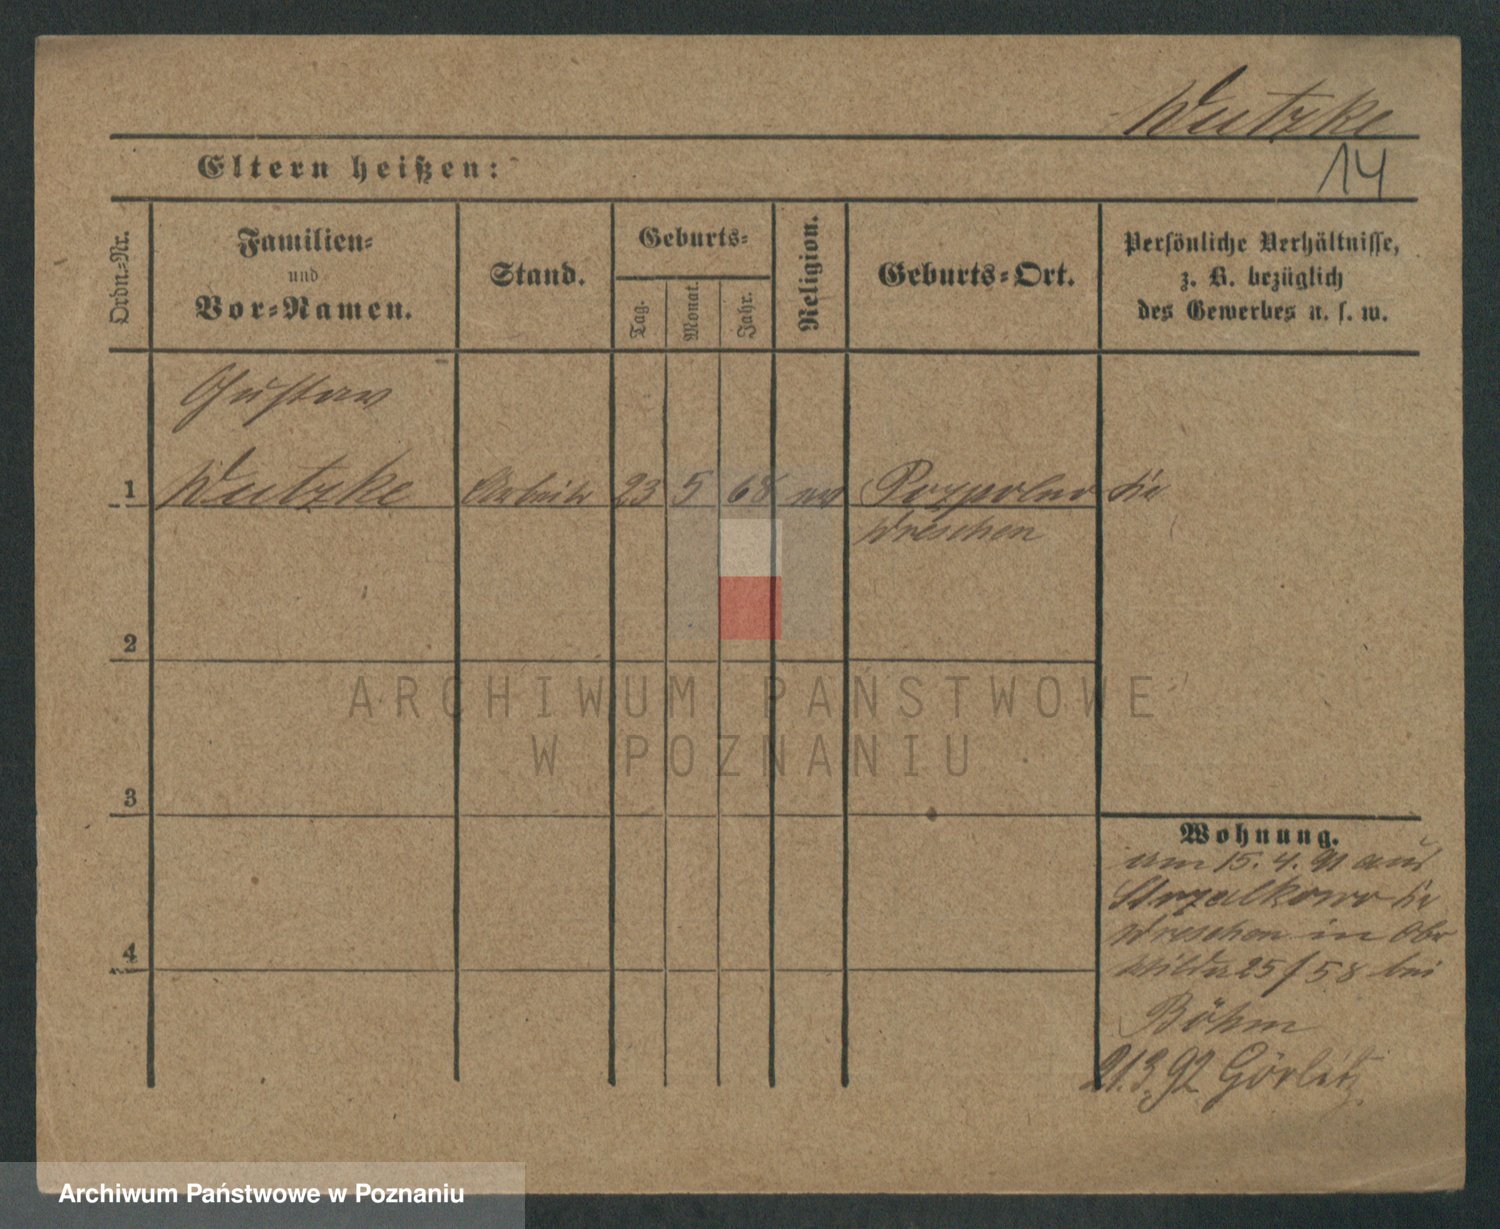 Wutzke
14
Eltern heißen:
Ordn.-Nr.
Familien-
und
Vor-Namen.
Stand.
Geburts-
Tag.
Monat.
Jahr.
Religion.
Geburts-Ort.
Persönliche Verhältnisse,
z. B. bezüglich
des Gewerbes u. s. w.
Gustav
1 Wutzke Arbeiter 23 5 68 Kr
Wreschen
2
ARCHIWUM PAŃSTWOWE
W POZNANIU
3
Wohnung.
am 15. 4. 91 aus
Strzalkowo Kr
Wreschen in Ober
Wilda 25/58 bei
Böhm
21.3.92 Görlitz
4
Archiwum Państwowe w Poznaniu